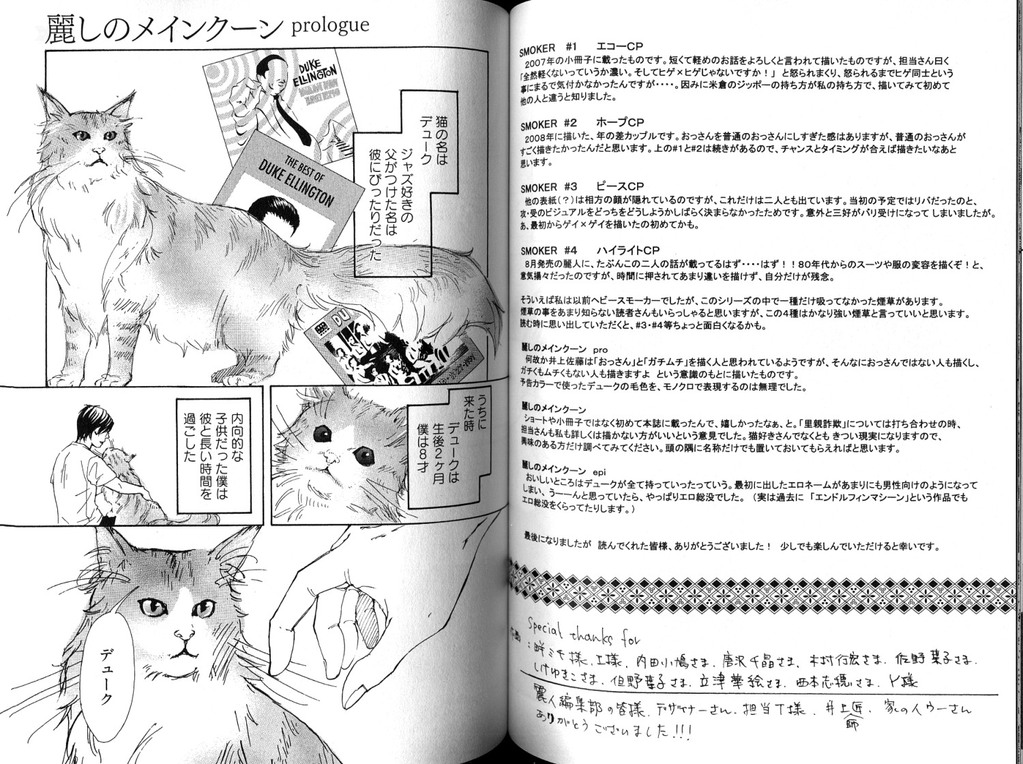 麗しのメインクーン prologue
DUKE ELLINGTON
THE BEST OF
DUKE ELLINGTON
猫の名は
デューク
ジャズ好きの
父がつけた名は
彼にぴったりだった
うちに
来た時
デュークは
生後2ヶ月
僕は8才
内向的な
子供だった僕は
彼と長い時間を
過ごした
デューク
SMOKER #1 エコーCP
2007年の小冊子に載ったものです。短くて軽めのお話をよろしくと言われて描いたものですが、担当さん曰く
「全然軽くないっていうか濃い。そしてヒゲ×ヒゲじゃないですか!」と怒られまくり、怒られるまでヒゲ同士という
事にまるで気付かなかったんですが・・・・。因みに米倉のジッポーの持ち方が私の持ち方で、描いてみて初めて
他の人と違うと知りました。
SMOKER #2 ホープCP
2008年に描いた、年の差カップルです。おっさんを普通のおっさんにしすぎた感はありますが、普通のおっさんが
すごく描きたかったんだと思います。上の#1と#2は続きがあるので、チャンスとタイミングが合えば描きたいなあと
思います。
SMOKER #3 ピースCP
他の表紙(?)は相方の顔が隠れているのですが、これだけは二人とも出ています。当初の予定ではリバだったのと、
攻・受のビジュアルをどっちをどうしようかしばらく決まらなかったためです。意外と三好がバリ受けになって しまいましたが。
あ、最初からゲイ×ゲイを描いたの初めてかも。
SMOKER #4 ハイライトCP
8月発売の麗人に、たぶんこの二人の話が載ってるはず・・・・はず!!80年代からのスーツや服の変容を描くぞ!と、
意気揚々だったのですが、時間に押されてあまり違いを描けず、自分だけが残念。
そういえば私は以前ヘビースモーカーでしたが、このシリーズの中で一種だけ吸ってなかった煙草があります。
煙草の事をあまり知らない読者さんもいらっしゃると思いますが、この4種はかなり強い煙草と言っていいと思います。
読む時に思い出していただくと、#3・#4等ちょっと面白くなるかも。
麗しのメインクーン pro
何故か井上佐藤は「おっさん」と「ガチムチ」を描く人と思われているようですが、そんなにおっさんではない人も描くし、
ガチくもムチくもない人も描きますよ という意識のもとに描いたものです。
予告カラーで使ったデュークの毛色を、モノクロで表現するのは無理でした。
麗しのメインクーン
ショートや小冊子ではなく初めて本誌に載ったんで、嬉しかったなぁ、と。「里親詐欺」については打ち合わせの時、
担当さんも私も詳しくは描かない方がいいという意見でした。猫好きさんでなくとも きつい現実になりますので、
興味のある方だけ調べてみてください。頭の隅に名称だけでも置いておいてもらえればと思います。
麗しのメインクーン epi
おいしいところはデュークが全て持っていったっていう。最初に出したエロネームがあまりにも男性向けのようになって
しまい、うーーんと思っていたら、やっぱりエロ総没でした。 (実は過去に 「エンドルフィンマシーン」という作品でも
エロ総没をくらってたりします。)
最後になりましたが 読んでくれた皆様、ありがとうございました! 少しでも楽しんでいただけると幸いです。
Special thanks for
様、工様、内田小鳩さま、唐沢千晶さま、木村行宏さま、佐野葉子さま、
しげゆきこさま、但野葉子さま、立津華絵さま、西本志穂さま、Y様
麗人編集部の皆様、デザイナーさん、担当T様、井上匠、家の人ウーさん
師
ありがとうございました!!!